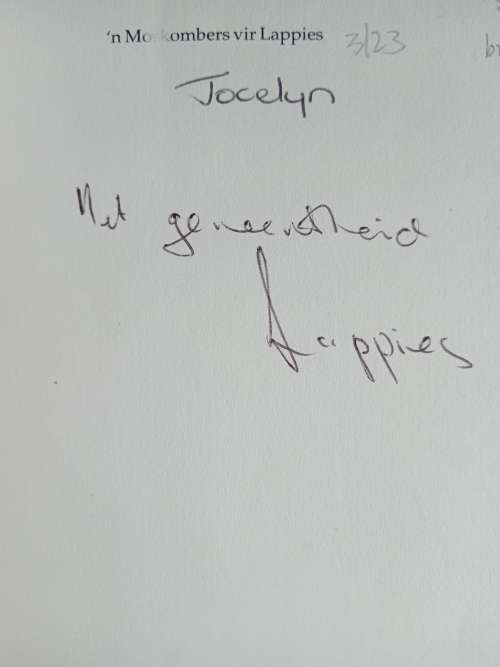 'n Moskombers vir Lappies 3/23
Jocelyn
Met geneentheid
Lappies